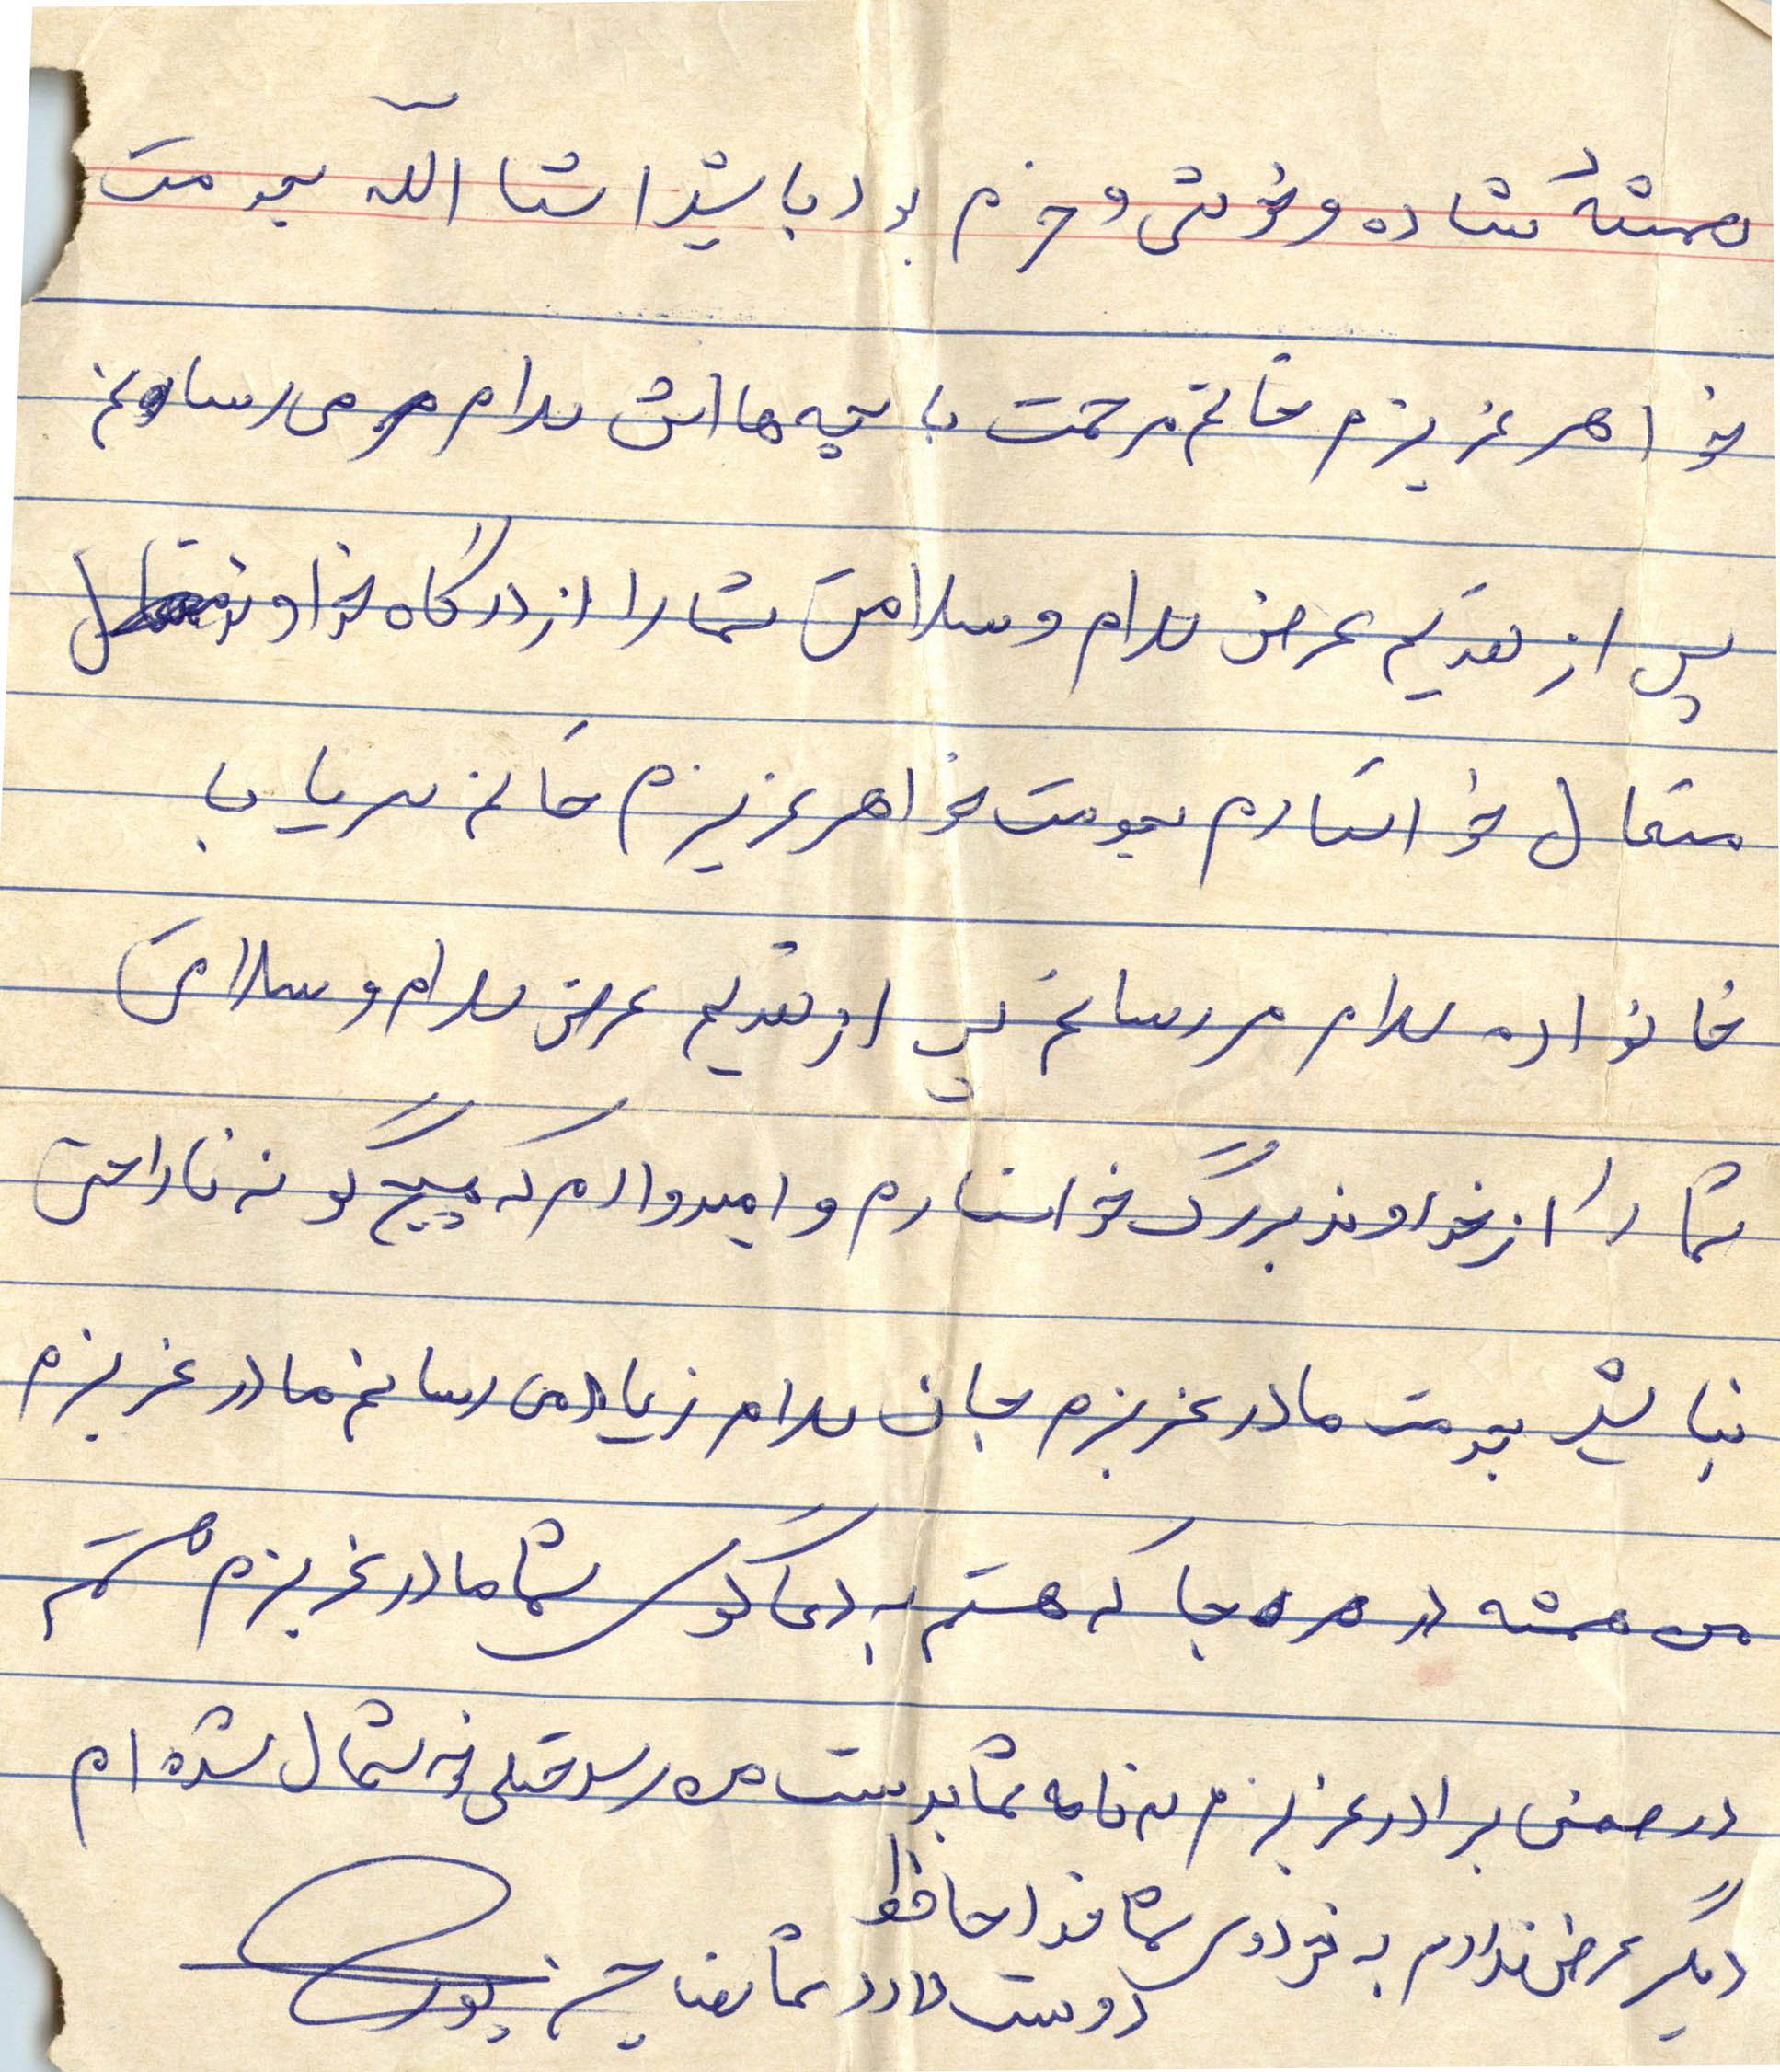 همیشه شاد و خوش و خرم بود باشید انشا الله بخدمت
خواهر عزیزم خانم مرحمت با بچه هااش سلام می رسانم
پس از تقدیم عرض سلام و سلامتی شما را از درگاه خداوند
متعال خواستارم بخدمت خواهر عزیزم خانم با
خانواده سلام میرسانم پس از تقدیم عرض سلام و سلامتی
شما را از خداوند بزرگ خواستارم و امیدوارم که هیچ گونه ناراحتی
نباشد بخدمت مادر عزیزم جان سلام زیاد می رسانم مادر عزیزم
من همیشه در هر جا که هستم به دعا گوی شما مادر عزیزم هستم
در ضمن برادر عزیزم که نامه شما بدست من رسد خیلی خوشحال شده ام
دیگر عرض ندارم به خدا حافظ
دوست شما